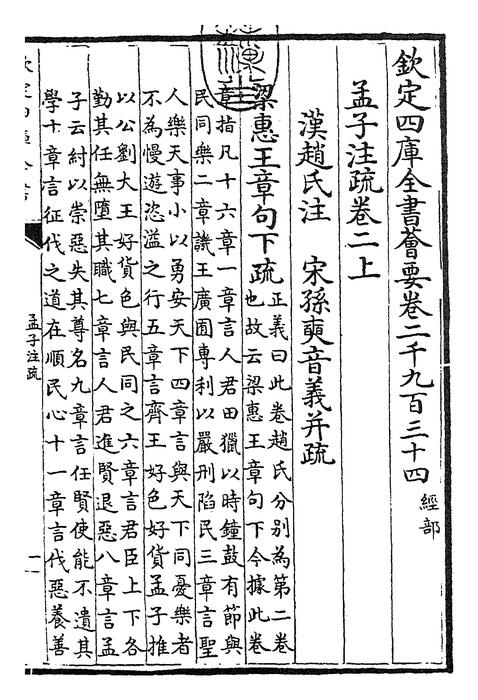 欽定四庫全書薈要卷二千九百三十四 經部
孟子注疏卷二上
漢趙氏注 宋孫奭音義并疏
梁惠王章句下疏
正義曰此卷趙氏分別為第二卷
也故云梁惠王章句下今據此卷
章指凡十六章一章言人君田獵以時鐘鼓有節與
民同樂二章譏王廣囿專利以嚴刑陷民三章言聖
人樂天事小以勇安天下四章言與天下同憂樂者
不為慢遊恣溢之行五章言齊王好色好貨孟子推
以公劉大王好貨色與民同之六章言君臣上下各
勤其任無墮其職七章言人君進賢退惡八章言孟
子云紂以崇惡失其尊名九章言任賢使能不遺其
學十章言征伐之道在順民心十一章言伐惡養善
孟子注疏
一